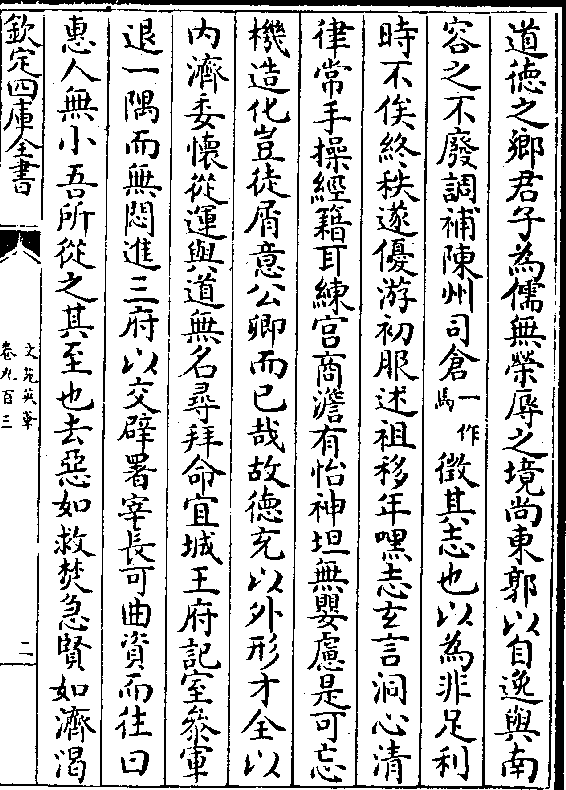 道徳之鄉君子為儒無榮辱之境尚東郭以自逸與南
容之不廢調補陳州司倉一作馬徵其志也以為非足利
時不俟終秩遂優游初服述祖移年嘿志玄言洞心清
律常手操經籍耳練宫商澹有怡神坦無嬰慮是可忘
機造化豈徒屑意公卿而已哉故德充以外形才全以
内濟委懷從運與道無名尋拜命宜城王府記室叅軍
退一隅而無悶進三府以交辟署宰長可曲資而往曰
惠人無小吾所從之其至也去惡如救焚急賢如濟渴
欽定四庫全書
文苑英華
卷九百三
二